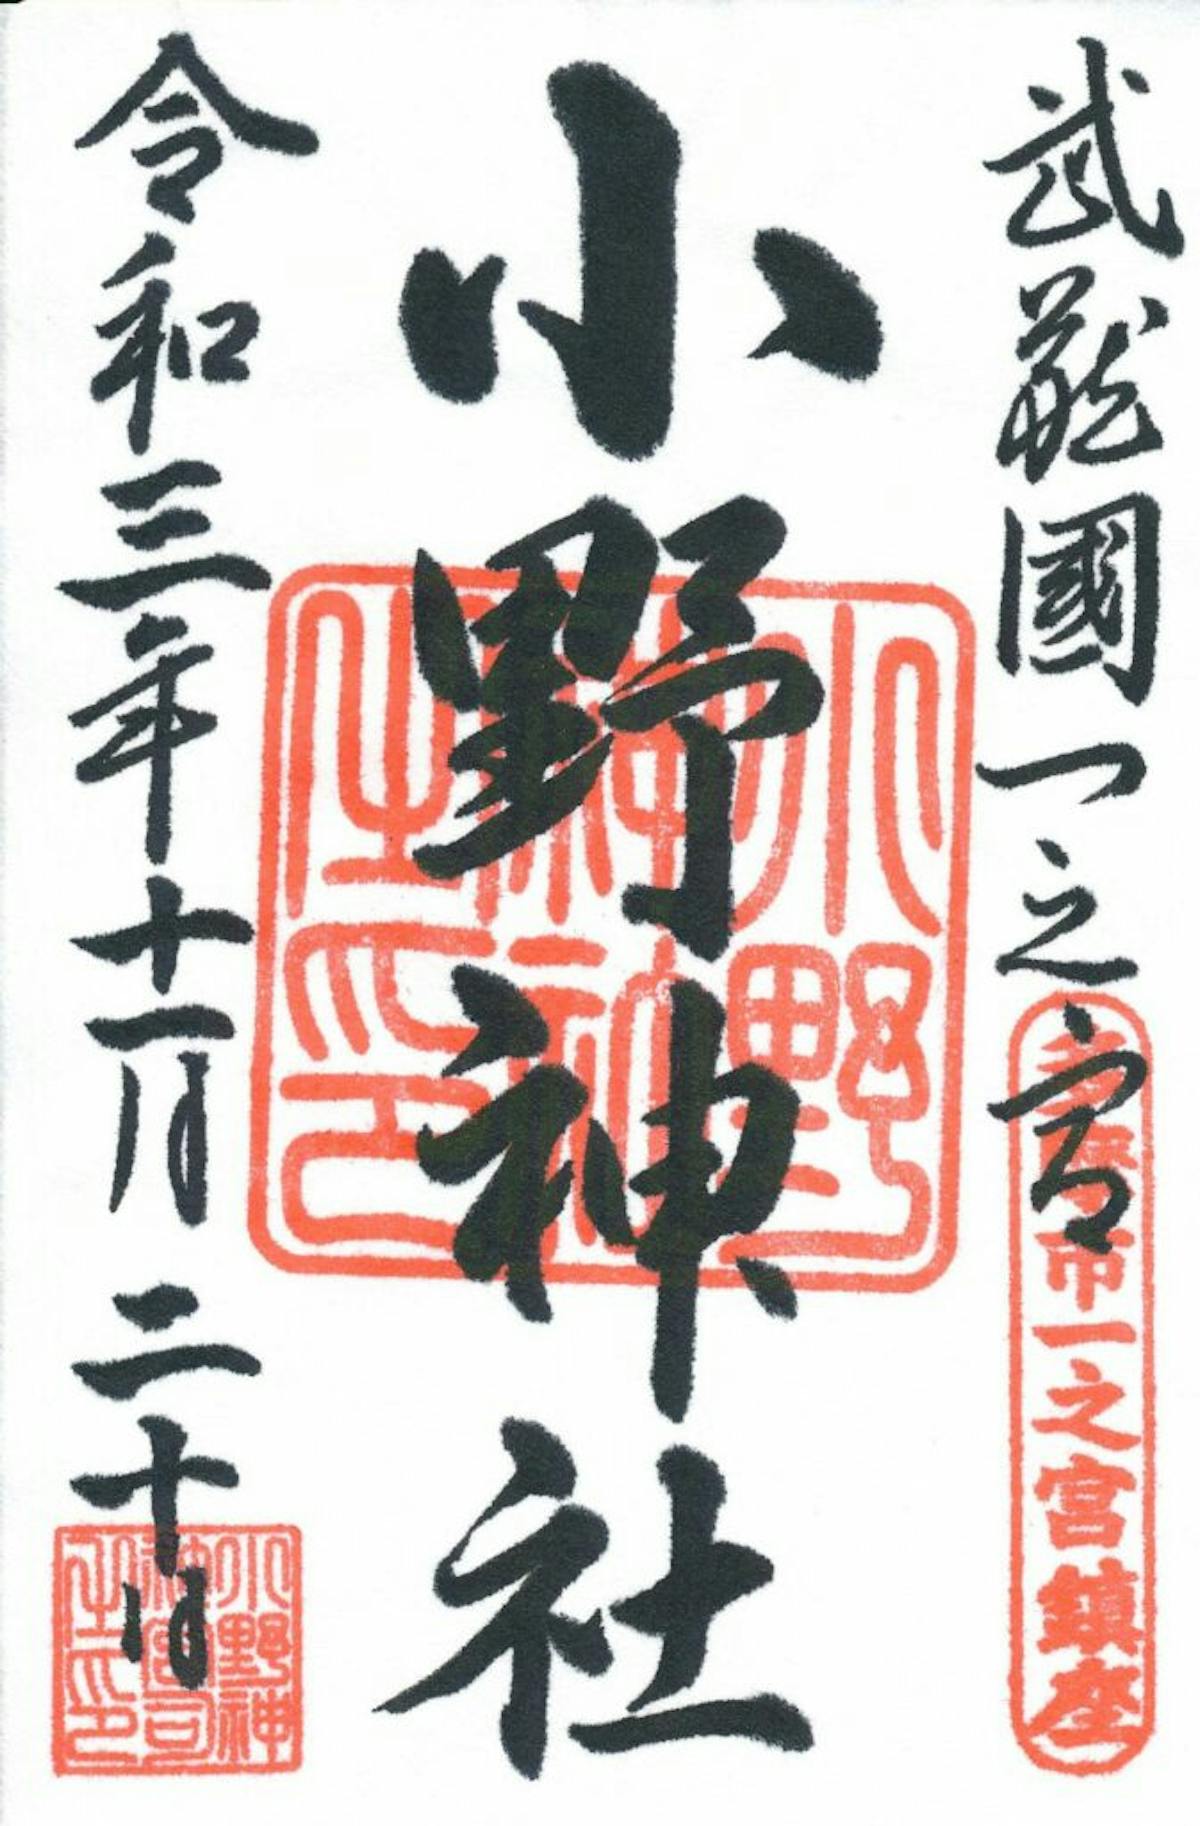 武蔵國一之宮
多摩市一之宮鎮座
小野神社
小野神社之印
令和三年十一月二十日
小野神神宮司之印